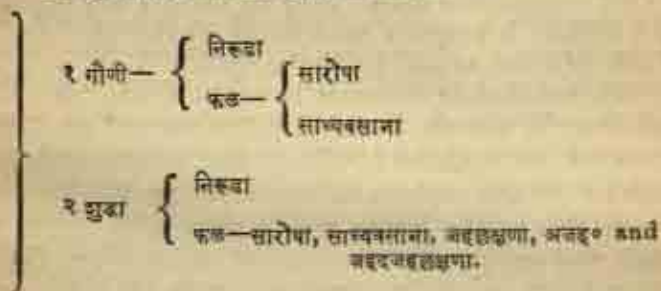 १ गौणी—
निरूढा
फल—
सारोपा
साध्यवसाना
२ शुद्धा
निरूढा
फल—सारोपा, साध्यवसाना. जहल्लक्षणा, अजह॰ and
जहदजहल्लक्षणा.